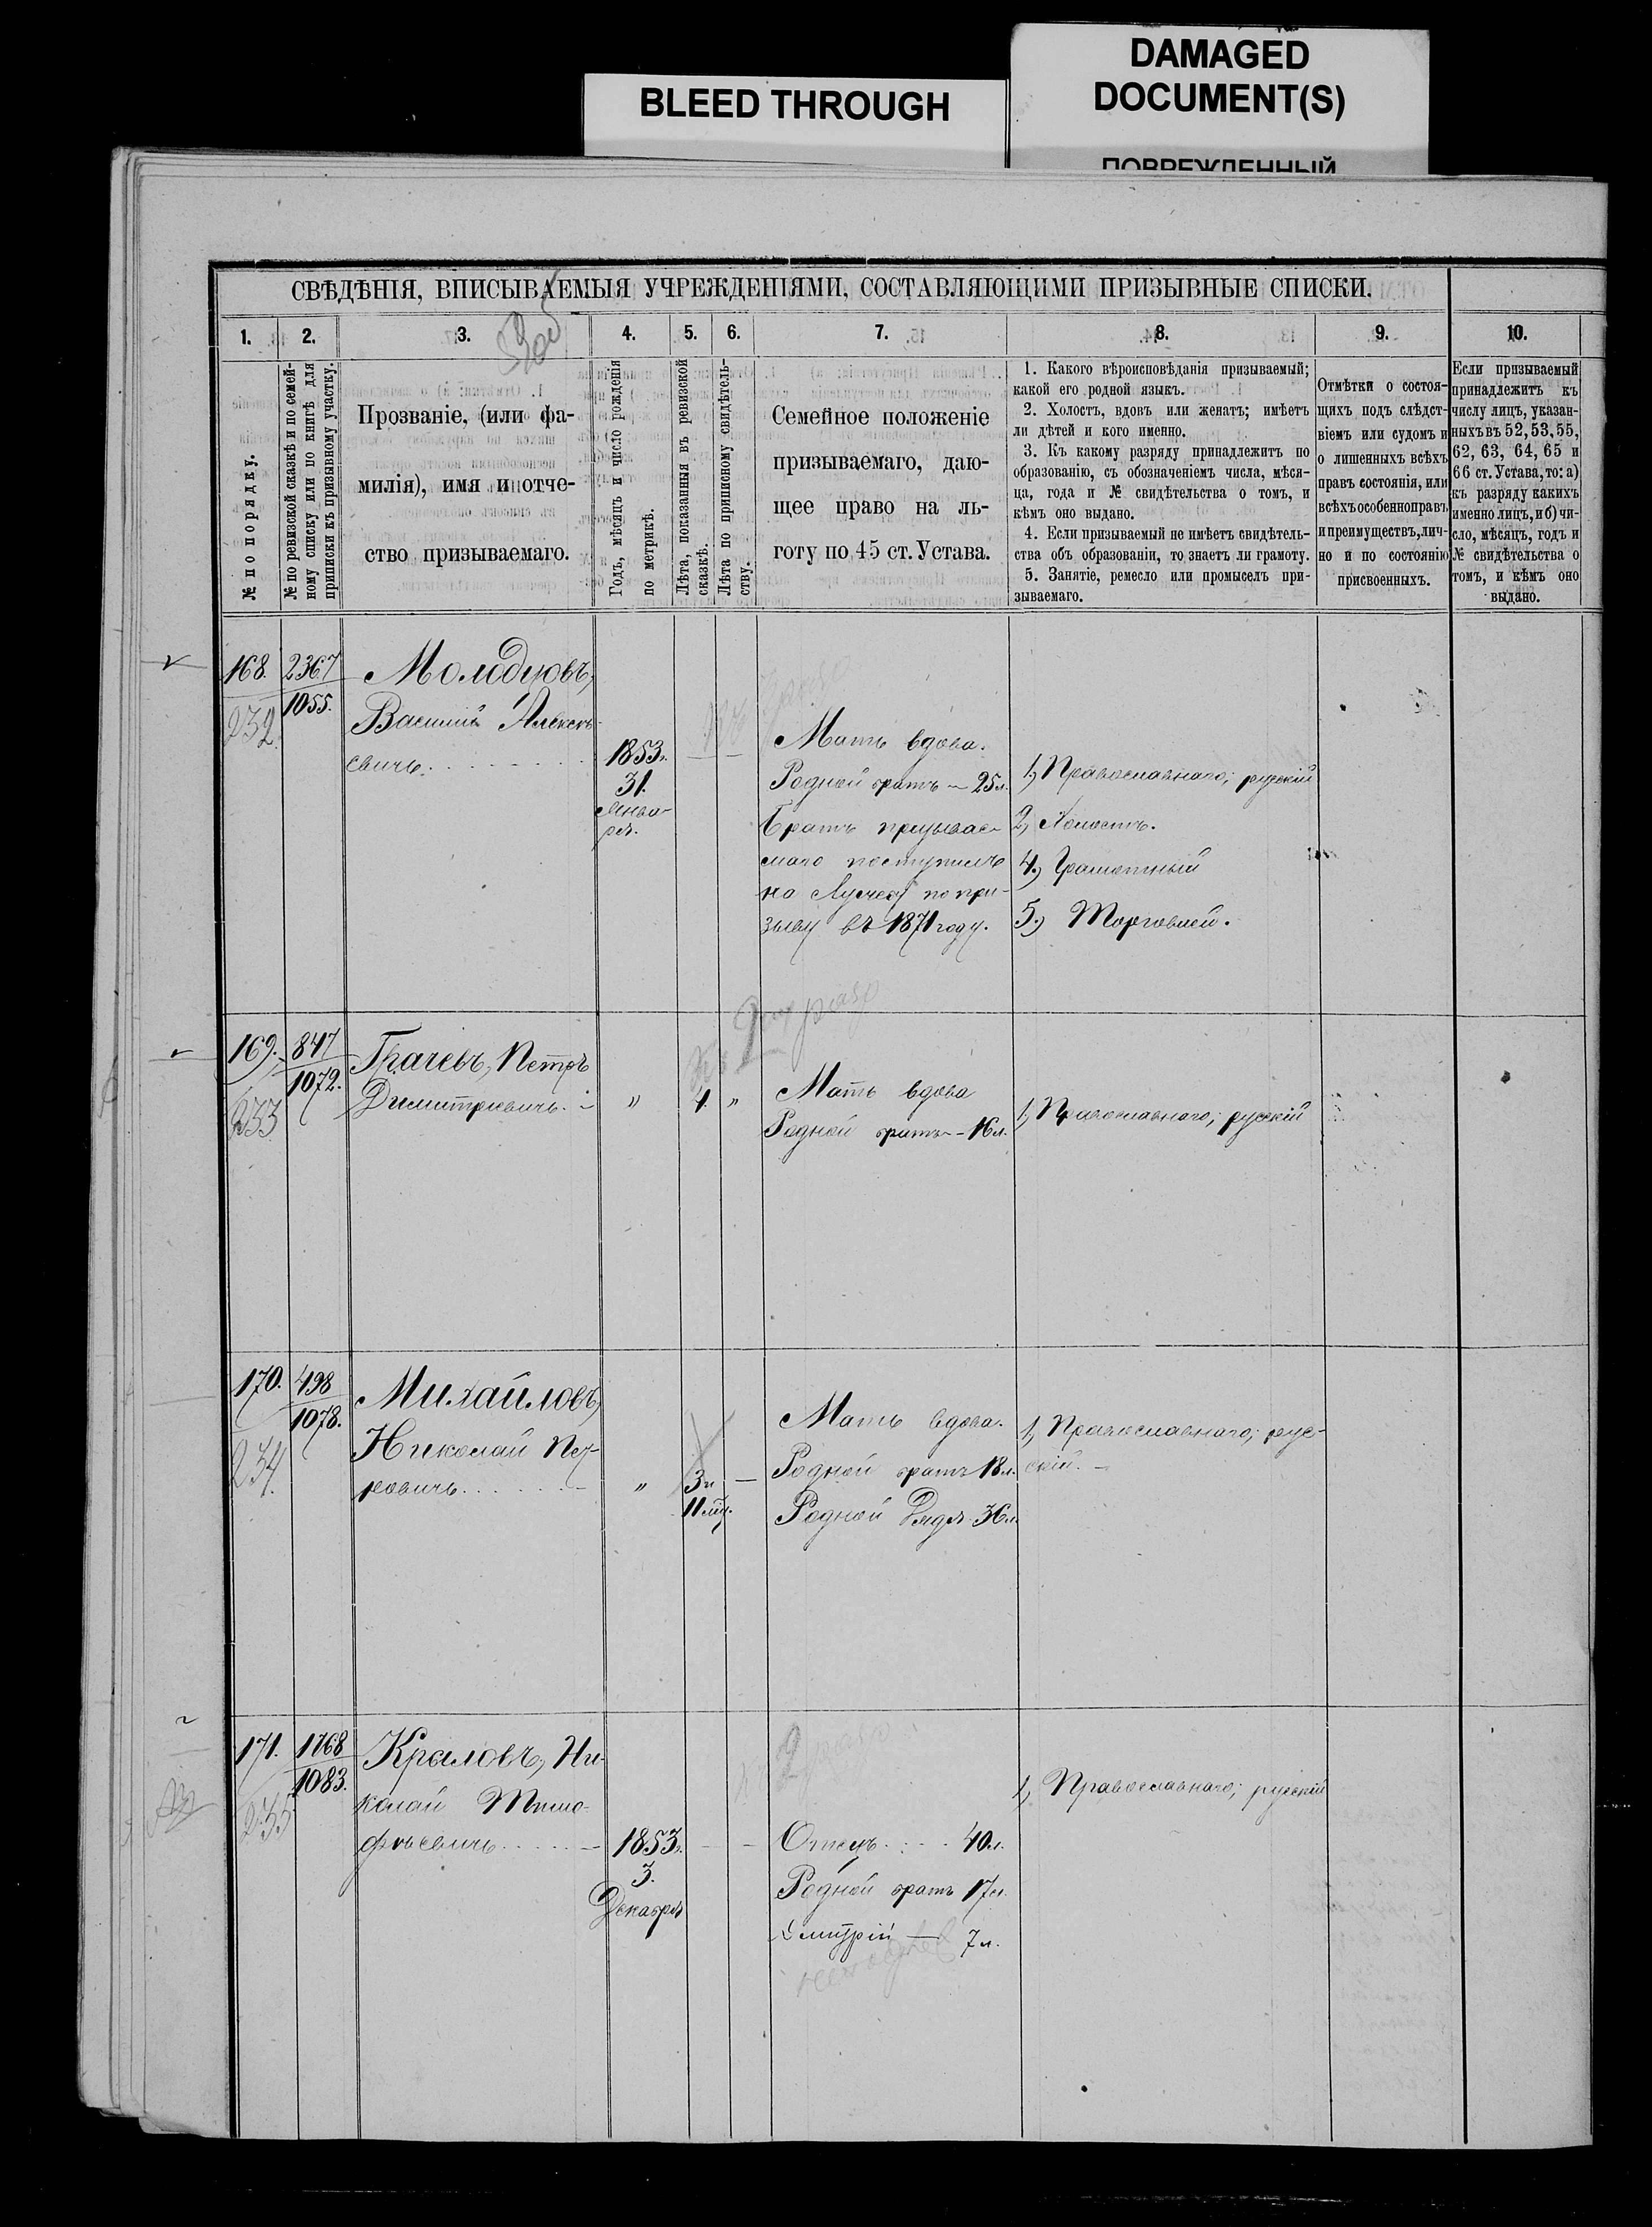 BLEED THROUGH
DAMAGED
DOCUMENT(S)
ПОВРЕЖДЕННЫЙ
СВѢДѢНІЯ, ВПИСЫВАЕМЫЯ УЧРЕЖДЕНІЯМИ, СОСТАВЛЯЮЩИМИ ПРИЗЫВНЫЕ СПИСКИ.
1. 2. 3. 4. 5. 6. 7. 8. 9. 10.
№ по порядку.
№ по ревизской сказкѣ и по семей-
ному списку или по книгѣ для
приписки къ призывному участку.
Прозваніе, (или фа-
милія), имя и отче-
ство призываемаго.
Годъ, мѣсяцъ и число рожденія
по метрикѣ.
Лѣта, показанныя въ ревизской
сказкѣ.
Лѣта по приписному свидѣтель-
ству.
Семейное положеніе
призываемаго, даю-
щее право на ль-
готу по 45 ст. Устава.
1. Какого вѣроисповѣданія призываемый;
какой его родной языкъ.
2. Холостъ, вдовъ или женатъ; имѣетъ
ли дѣтей и кого именно.
3. Къ какому разряду принадлежитъ по
образованію, съ обозначеніемъ числа, мѣся-
ца, года и № свидѣтельства о томъ, и
кѣмъ оно выдано.
4. Если призываемый не имѣетъ свидѣтель-
ства объ образованіи, то знаетъ ли грамоту.
5. Занятіе, ремесло или промыселъ при-
зываемаго.
Отмѣтки о состоя-
щихъ подъ слѣдст-
віемъ или судомъ и
о лишенныхъ всѣхъ
правъ состоянія, или
всѣхъ особенно правъ
и преимуществъ, лич-
но и по состоянію
присвоенныхъ.
Если призываемый
принадлежитъ къ
числу лицъ, указан-
ныхъ въ 52, 53, 55,
62, 63, 64, 65 и
66 ст. Устава, то: а)
къ разряду какихъ
именно лицъ, и б) чи-
сло, мѣсяцъ, годъ и
№ свидѣтельства о
томъ, и кѣмъ оно
выдано.
168. 2367
1055.
232.
Василій Алексѣ-
евичъ
1853г.
31.
Янва-
ря.
Мать вдова.
Родной братъ — 25 л.
Братъ призывае-
маго поступилъ
на службу по при-
зыву въ 1871 году.
1, Православнаго; русскій
2, Холостъ.
4.) Грамотный
5.) Торговлей.
169. 847
1072.
233
Грачевъ, Петръ
Димитріевичъ. —
" 4. "
Мать вдова
Родной братъ — 16 л.
1, Православнаго; русскій
170. 498
1078.
234.
Михайловъ,
Николай Пет-
ровичъ
" 3 г. —
11 мц.
Мать вдова.
Родной братъ 18 л.
Родной Дядя 36 л.
1, Православнаго; рус-
скій. —
171. 1768
1083.
235
Крыловъ, Ни-
колай Тимо-
фѣевичъ
1853г.
3.
Декабря
2
Отецъ 40 л.
Родной братъ 17 л.
Дмитрій — 7 л.
1, Православнаго; русскій